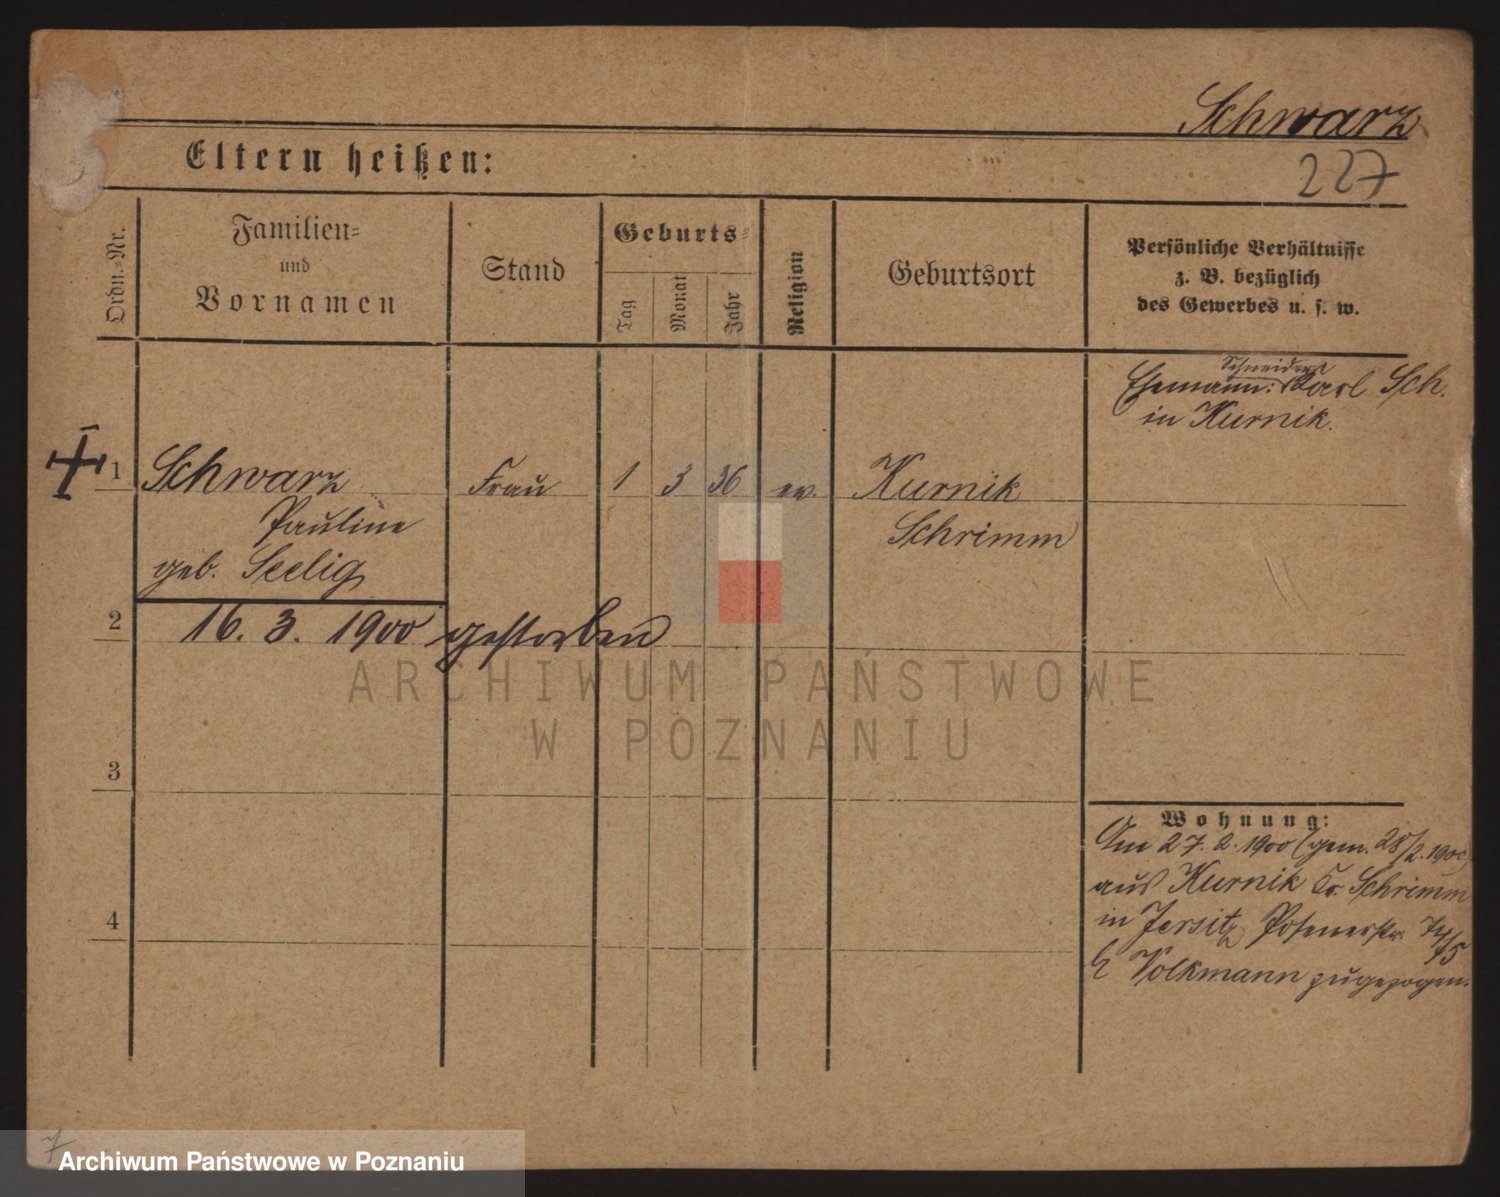 Schwarz
227
Eltern heißen:
Ordn.-Nr.
Familien-
und
Vornamen
Stand
Geburts-
Tag
Monat
Jahr
Religion
Geburtsort
Persönliche Verhältnisse
z. B. bezüglich
des Gewerbes u. s. w.
Schneiders
Ehemann: Karl Sch.
in Kurnik.
1 Schwarz Frau 1 3 36 ev. Kurnik
Pauline Schrimm
geb. Seelig
2 16. 3. 1900 gestorben
ARCHIWUM PAŃSTWOWE
W POZNANIU
3
Wohnung:
Am 27. 2. 1900 (gem. 28/2. 1900)
aus Kurnik Kr. Schrimm
in Jersitz Posenerstr. 74/75
b Volkmann zugezogen.
4
Archiwum Państwowe w Poznaniu